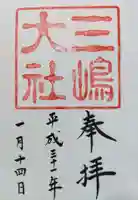 奉拝
三嶋
大社
平成三十一年
一月十四日